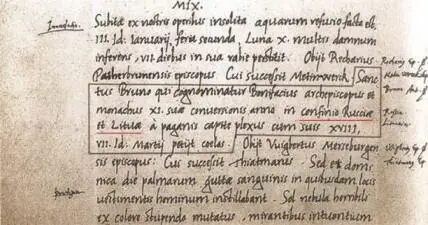 MIX.
Subita ex nostris operibus insolita aquarum refusio facta est
Inundatio.
III. Id. Ianuarij, feria secunda, Luna X. multis damnum
inferens, VII diebus in sua perstitit. Obijt Recharius
Patherbrunensis episcopus. Cui successit Meinwerck / Sanc
tus Bruno qui cognominatur Bonifacius archiepiscopus et
monachus XI. suæ conversionis anno in confinio Rusciæ
et Lituæ à paganis capite plexus cum suis XVIII,
VII. Id. Martij petijt coelos. Obijt Wigbertus Merseburgen
sis episcopus: Cui successit Thiatmarus. Sed et domi
nica die palmarum guttæ sanguinis in quibusdam locis
vestimentis hominum instillabant. Sol nebula horribili
ex colore stupendo mutatus, mirantibus intuentium